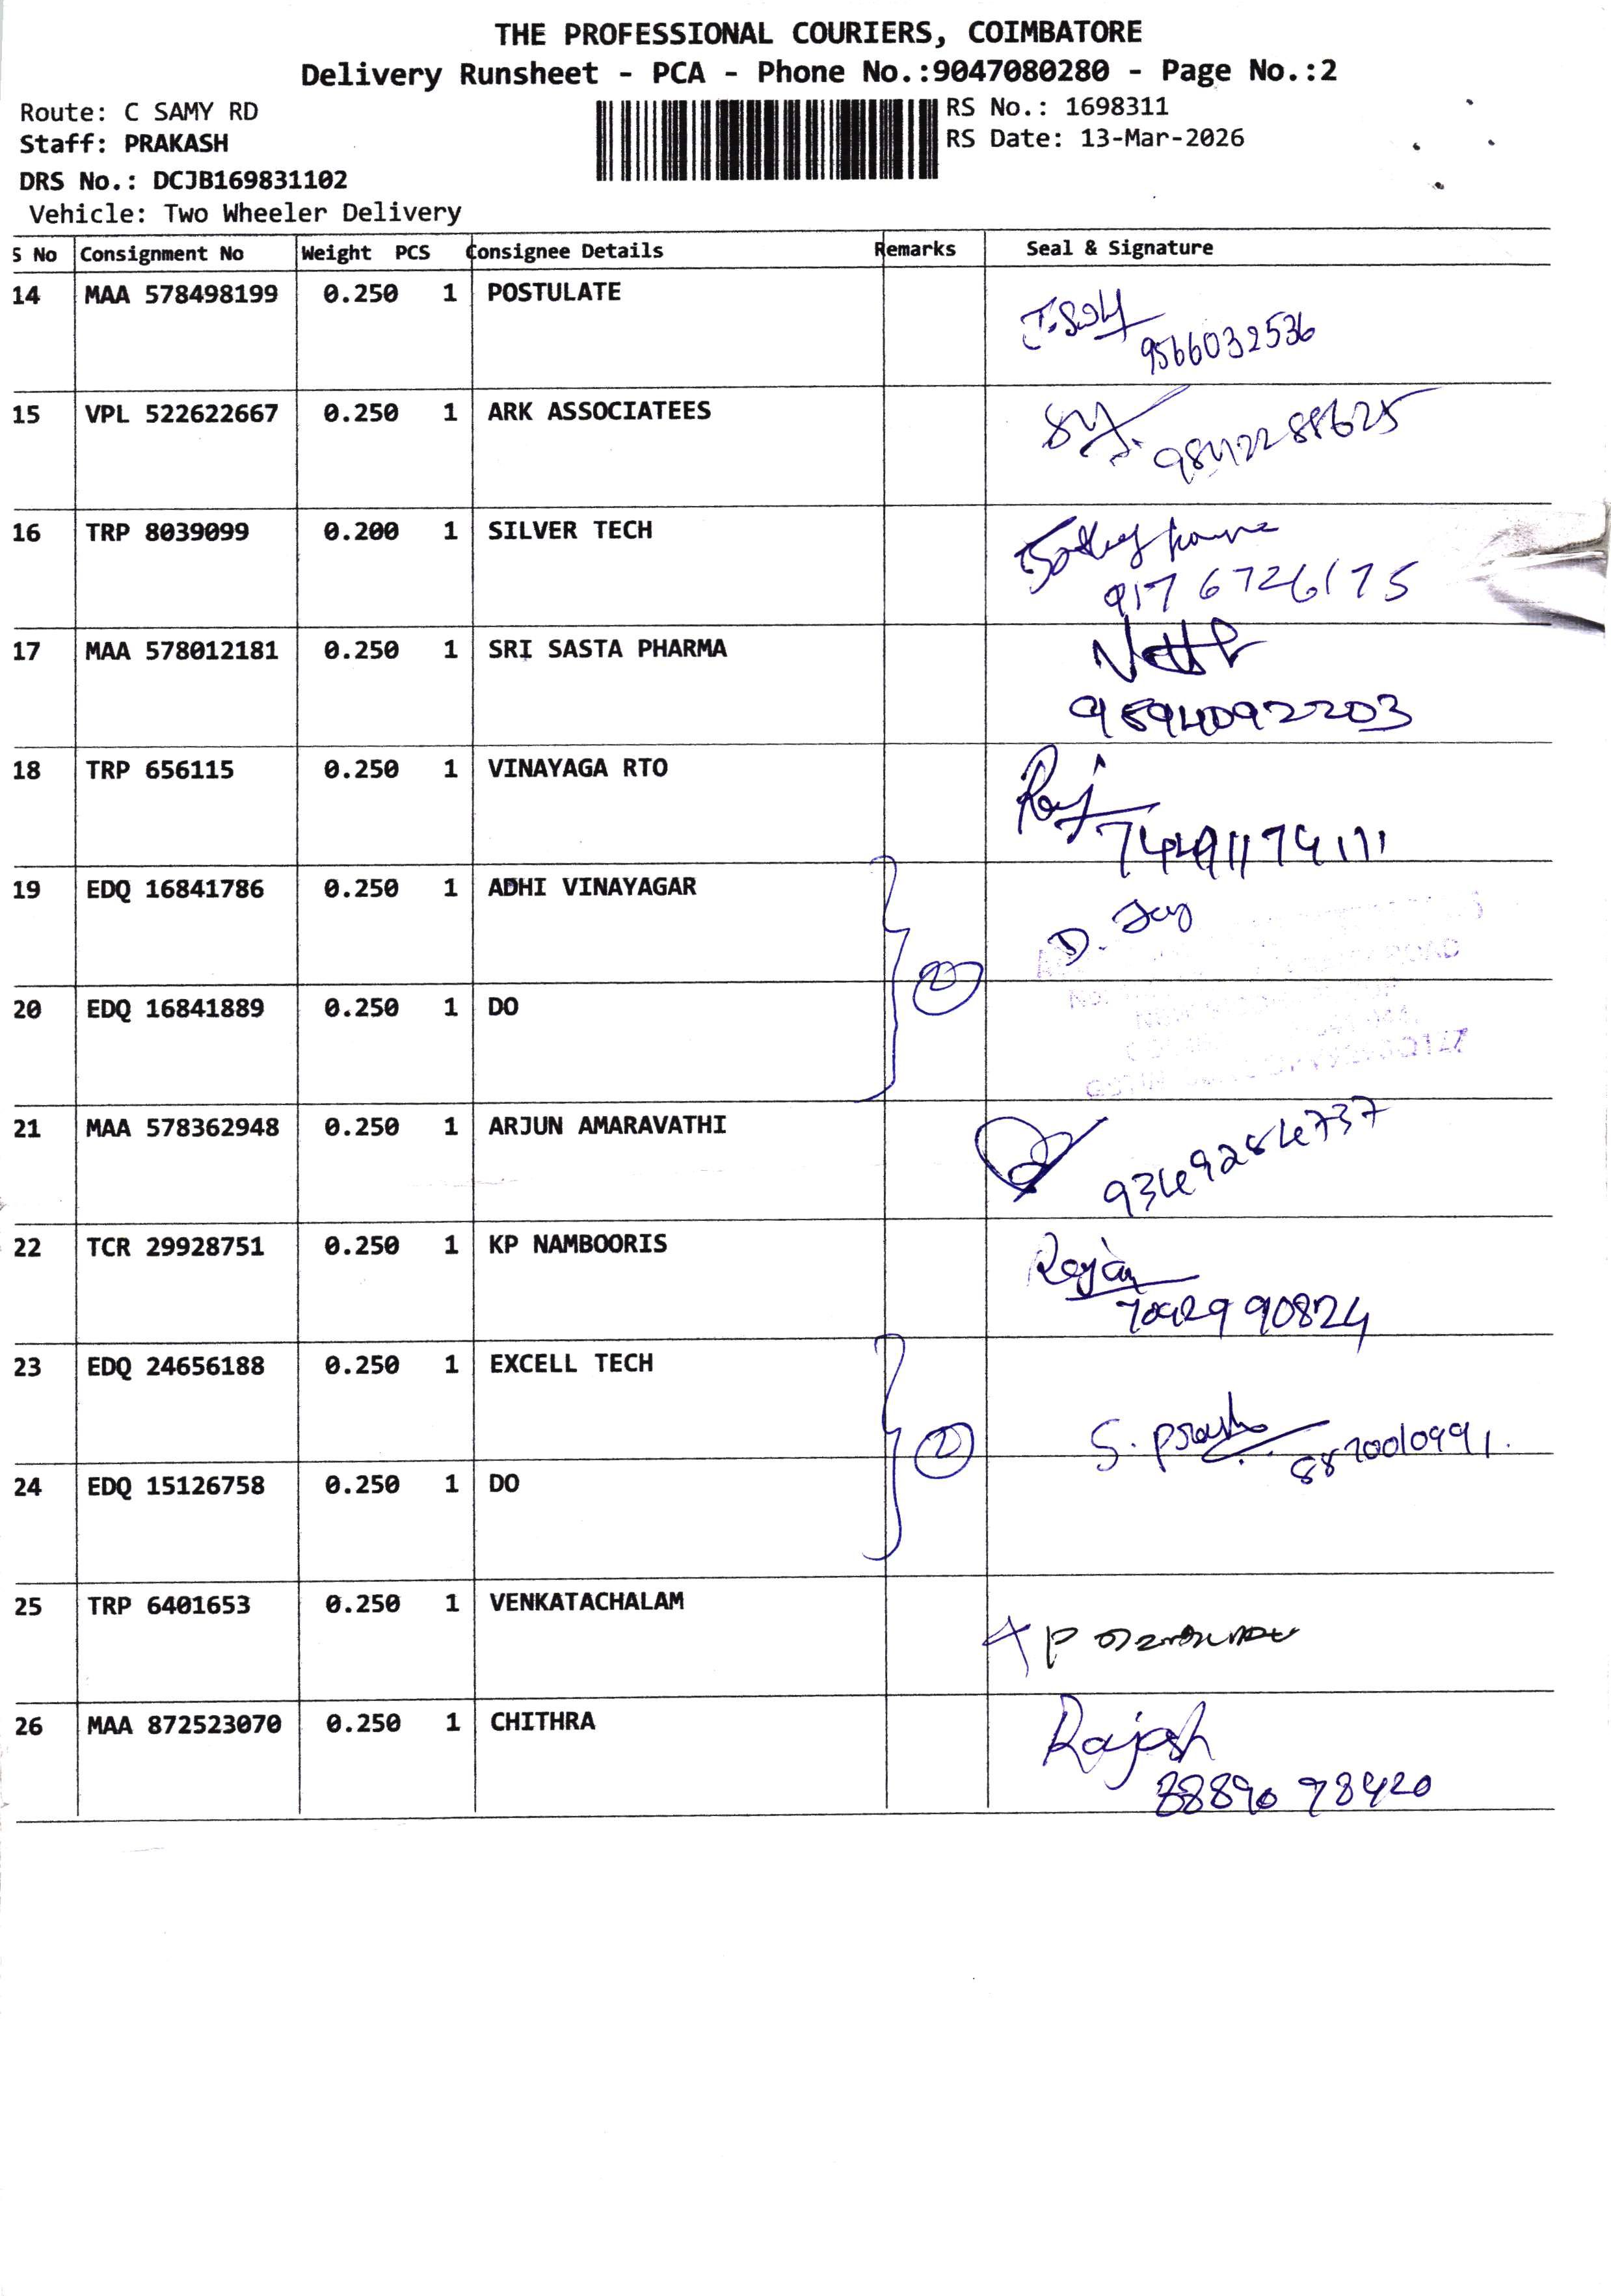 THE PROFESSIONAL COURIERS, COIMBATORE
Delivery Runsheet - PCA - Phone No.:9047080280 - Page No.:2
Route: C SAMY RD
RS No.: 1698311
Staff: PRAKASH
RS Date: 13-Mar-2026
DRS No.: DCJB169831102
Vehicle: Two Wheeler Delivery
S No Consignment No Weight PCS Consignee Details Remarks Seal & Signature
14 MAA 578498199 0.250 1 POSTULATE
9566032536
15 VPL 522622667 0.250 1 ARK ASSOCIATEES
9842288625
16 TRP 8039099 0.200 1 SILVER TECH
9176726175
17 MAA 578012181 0.250 1 SRI SASTA PHARMA
18 TRP 656115 0.250 1 VINAYAGA RTO
Raj
19 EDQ 16841786 0.250 1 ADHI VINAYAGAR
D. Jay
2
20 EDQ 16841889 0.250 1 DO
21 MAA 578362948 0.250 1 ARJUN AMARAVATHI
22 TCR 29928751 0.250 1 KP NAMBOORIS
Rajan
23 EDQ 24656188 0.250 1 EXCELL TECH
2
8870010991.
24 EDQ 15126758 0.250 1 DO
25 TRP 6401653 0.250 1 VENKATACHALAM
26 MAA 872523070 0.250 1 CHITHRA
Rajesh
88890 78420